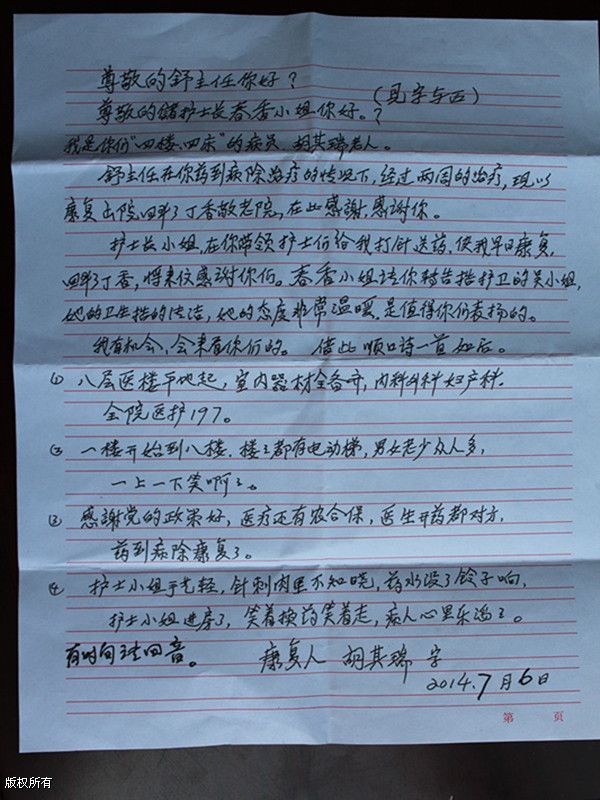 尊敬的舒主任你好?
尊敬的储护士长春香小姐你好。?
(见字与面)
我是你们"四楼.四床"的病员,胡其瑞老人。
舒主任在你药到病除治疗的情况下,经过两周的治疗,现以
康复出院回到了丁香敬老院,在此感谢,感谢你。
护士长小姐,在你带领护士们给我打针送药,使我早日康复,
回到了丁香,将来仪感谢你们。春香小姐请你转告搞护卫的吴小姐,
她的卫生搞的洁洁,她的态度非常温暖,是值得你们表扬的。
我有机会,会来看你们的。借此顺口诗一首如后。
① 八层医楼平地起,室内器材全备齐,内科外科妇产科.
全院医护197。
② 一楼开始到八楼.楼々都有电动梯,男女老少众人多,
一上一下笑啊々。
③ 感谢党的政策好,医疗还有农合保,医生开药都对方,
药到病除康复了。
④ 护士小姐手艺轻,针刺肉里不知晓,药水没了铃子响,
护士小姐进房了,笑着换药笑着走,病人心里乐滔々。
有时间请回音。 康复人 胡其瑞 字
2014.7月6日
第 页
版权所有